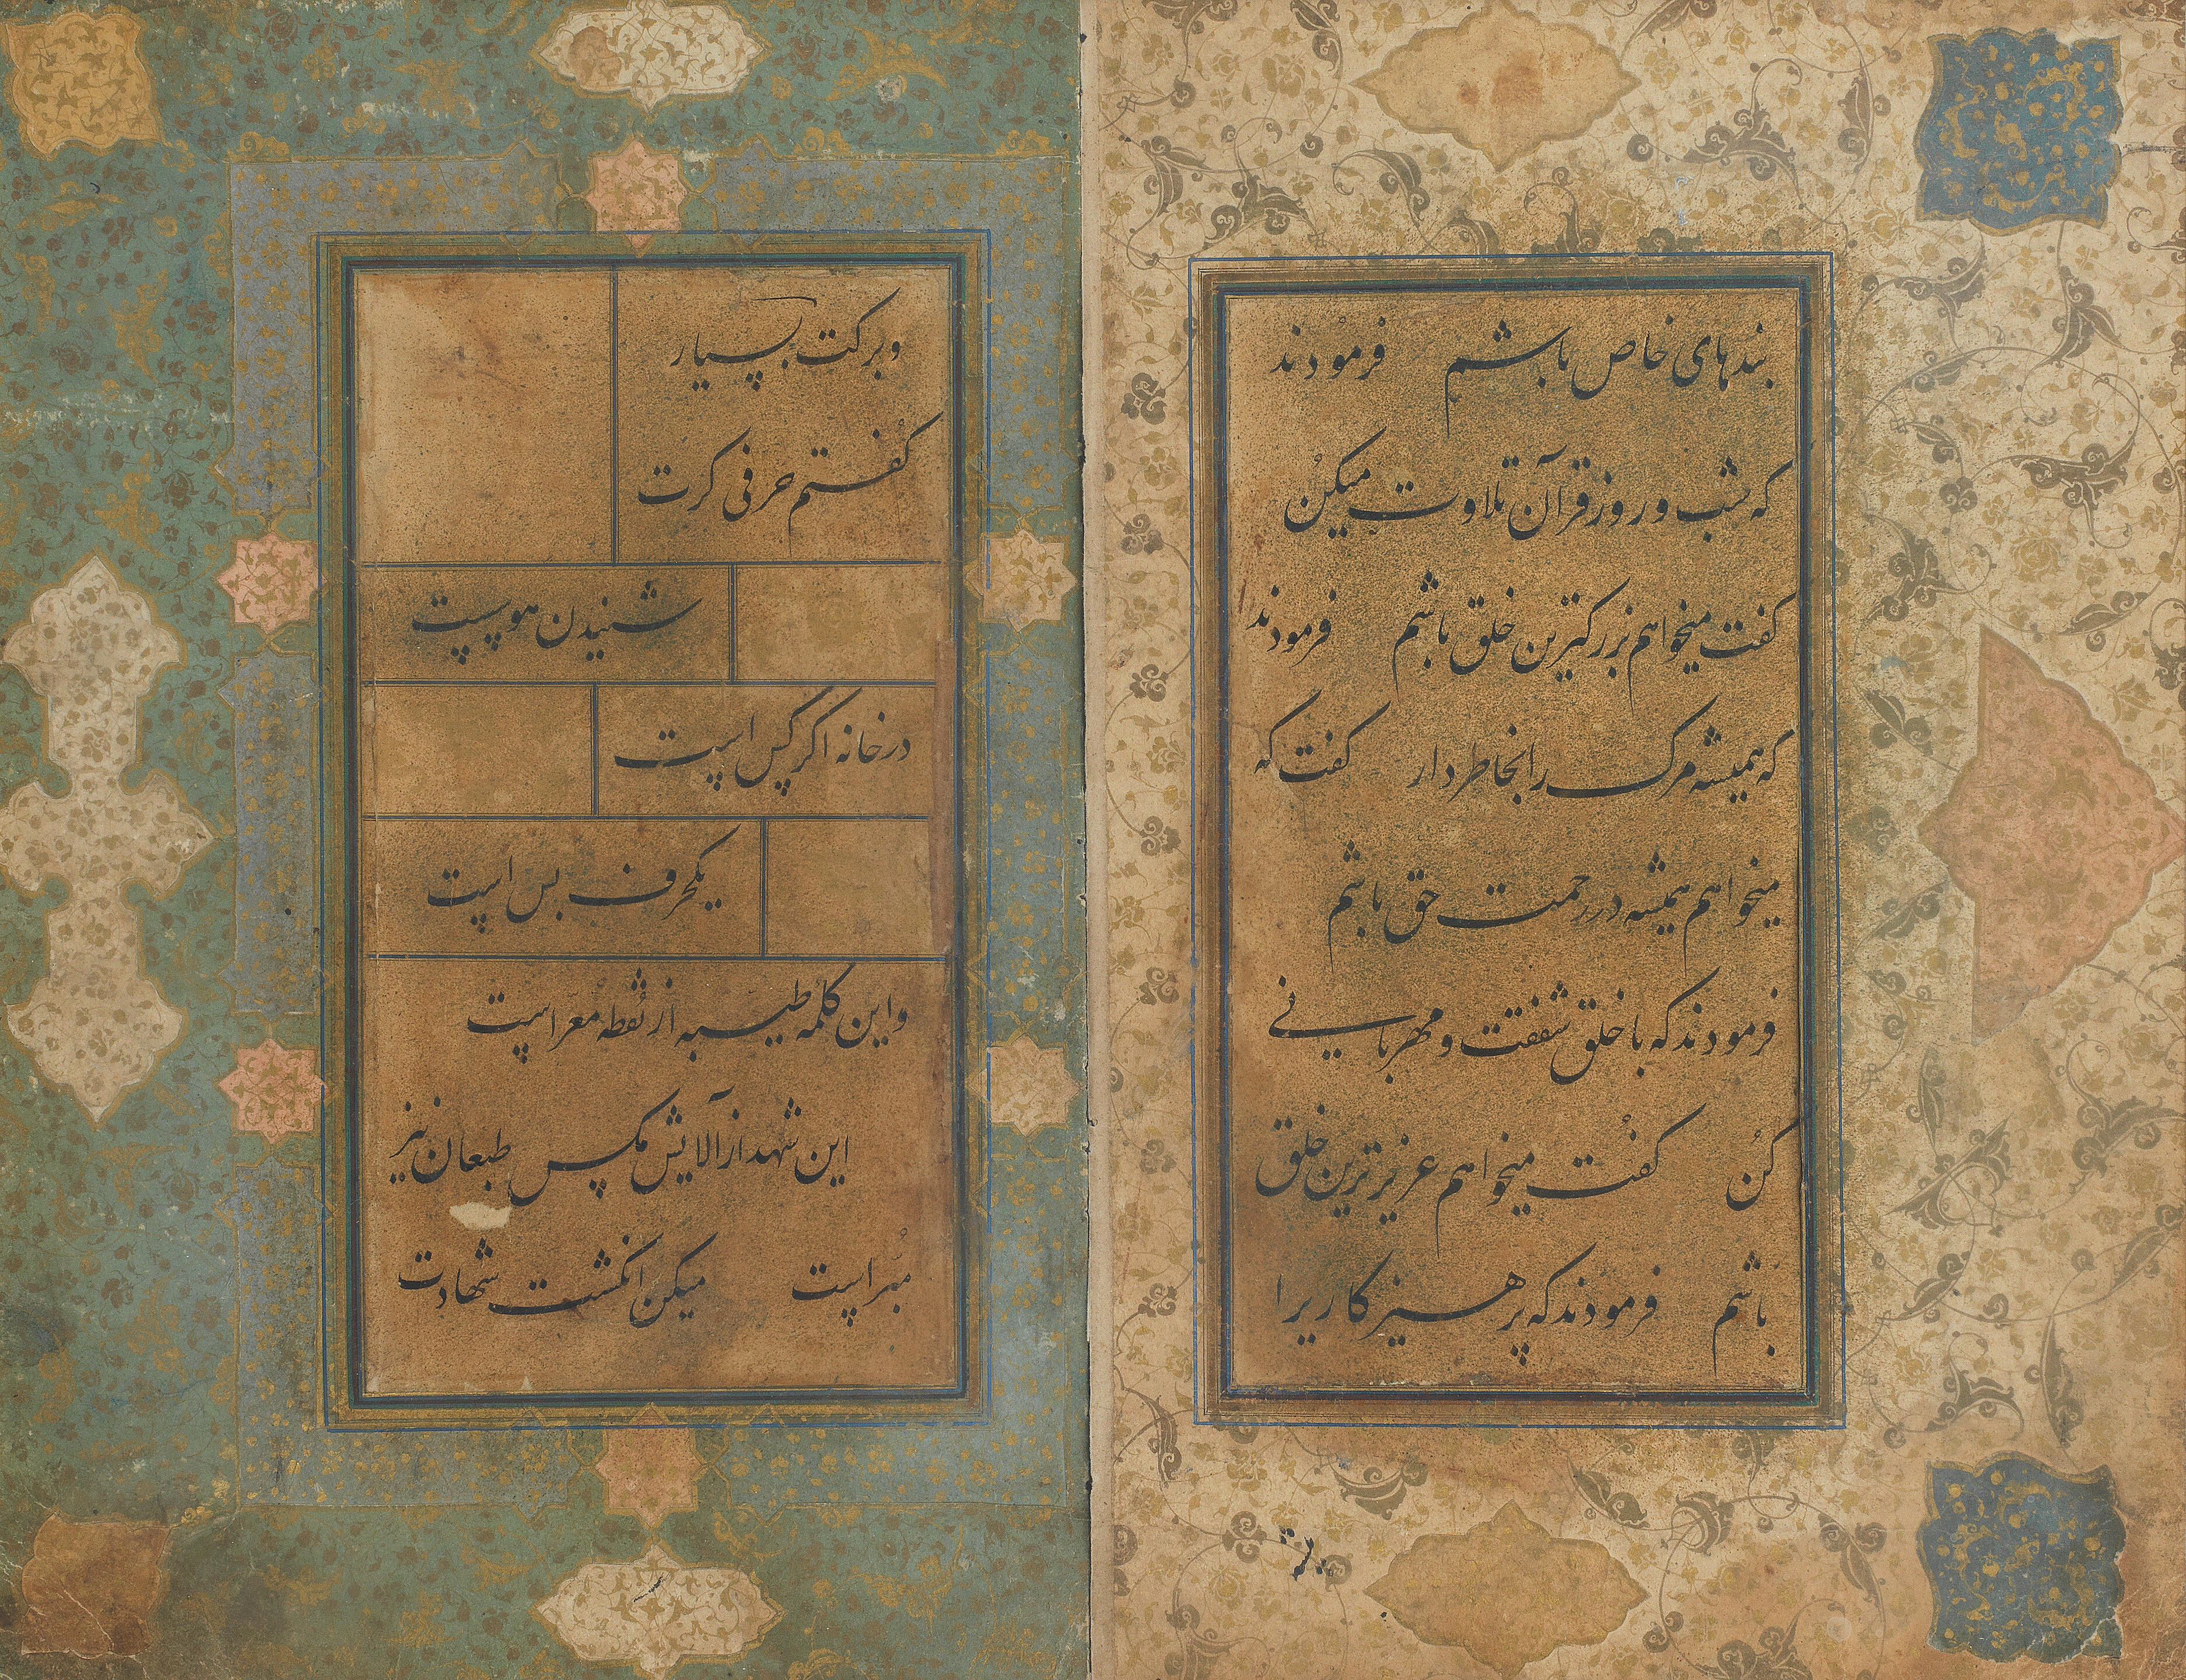 بندهای خاص باشم فرمودند
که شب و روز قرآن تلاوت میکن
کفت میخواهم بزرکترین خلق باشم فرمودند
که همیشه مرک را بخاطر دار کفت که
میخواهم همیشه در رحمت حق باشم
فرمودند که با خلق شفقت و مهربانی
کن کفت میخواهم عزیزترین خلق
باشم فرمودند که پرهیزکاریرا
وبرکت بسیار
کفتم حرفی کرت
شنیدن هوسست
درخانه اکر کس است
یکحرف بس است
واین کلمه طیبه از نقطه معراست
این شهد از آلایش مکس طبعان نیز
مبراست میکن انکشت شهادت